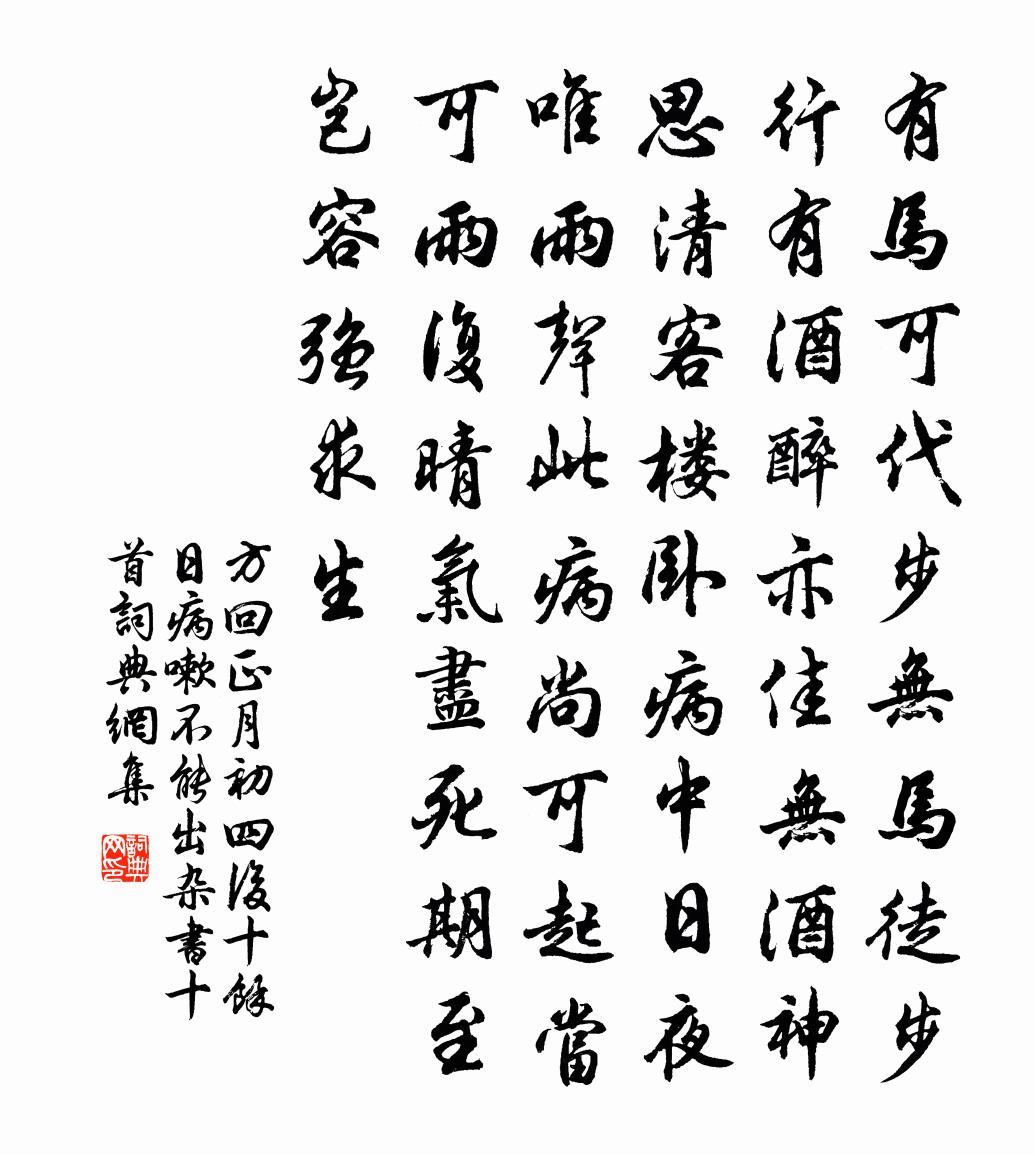 有馬可代步無馬徒步
行有酒醉亦佳無酒神
思清客楼卧病中日夜
唯雨聲此病尚可起當
可雨復晴氣盡死期至
豈容強求生
方回正月初四後十餘
日病嗽不能出杂書十
首詞典網集
詞典网印